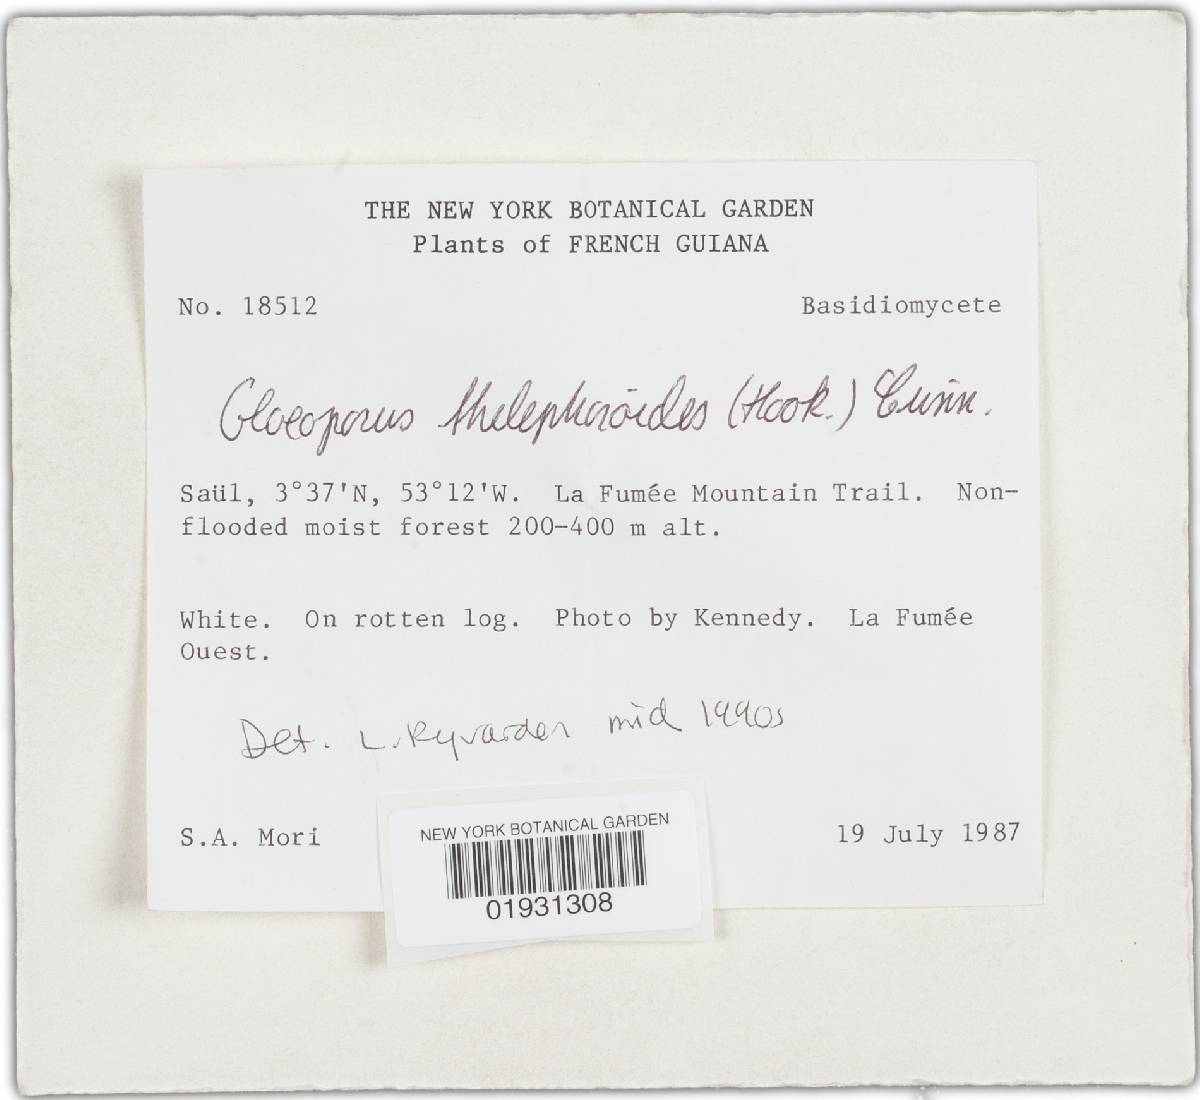 THE NEW YORK BOTANICAL GARDEN
Plants of FRENCH GUIANA
No. 18512 Basidiomycete
Gloeoporus thelephoroides (Hook.) Cunn.
Saül, 3°37'N, 53°12'W. La Fumée Mountain Trail. Non-
flooded moist forest 200-400 m alt.
White. On rotten log. Photo by Kennedy. La Fumée
Ouest.
Det. L. Ryvarden mid 1990s
S.A. Mori 19 July 1987
NEW YORK BOTANICAL GARDEN
01931308